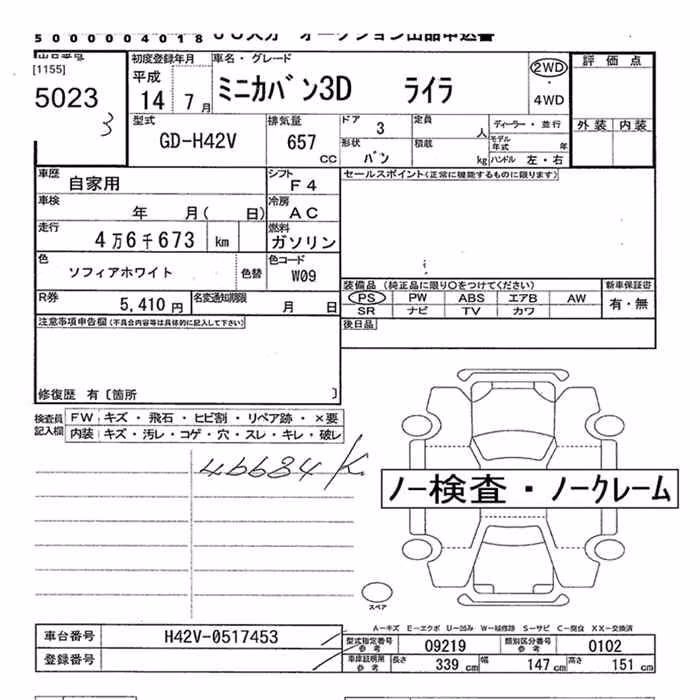 5000004018
オークション出品申込書
[1155]
5023
3
初度登録年月
平成
14年 7月
車名・グレード
ミニカバン3D ライラ
2WD
・
4WD
評価点
外装 内装
型式
GD-H42V
排気量
657
CC
ドア
3
定員
人
ディーラー・並行
形状
バン
積載
kg
モデル年式
年
ハンドル 左・右
車歴
自家用
シフト
F4
セールスポイント(正常に機能するものに限ります)
車検
年 月( 日)
冷房
AC
走行
4万6千673 km
燃料
ガソリン
色
ソフィアホワイト
色替
色コード
W09
装備品(純正品に限り○をつけてください)
新車保証書
PS PW ABS エアB AW
有・無
SR ナビ TV カワ
R券
5,410 円
名変通知期限
月 日
後日品
注意事項申告欄(不具合内容等は具体的に記入して下さい)
修復歴 有〔箇所 〕
検査員記入欄
FW キズ・飛石・ヒビ割・リペア跡・×要
内装 キズ・汚レ・コゲ・穴・スレ・キレ・破レ
46684K
ノー検査・ノークレーム
スペア
A-キズ E-エクボ U-凹み W-補修跡 S-サビ C-腐食 XX-交換済
車台番号
H42V-0517453
登録番号
型式指定番号
参考
09219
類別区分番号
参考
0102
車庫証明用
参考
長さ 339 cm
幅 147 cm
高さ 151 cm